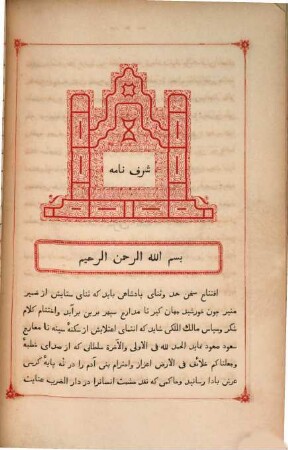 شرف نامه
بسم الله الرحمن الرحيم
افتتاح سخن حمد وثنای پادشاهی باید که ثنای ستایش از ضمیر
منیر چون خورشید جهان کیر تا مدارج سپهر برین برآید واختتام کلام
شکر وسپاس مالك الملکی شاید که انتهای اعتلایش از سکنهٔ سینه تا معارج
صعود صعود نماید الحمد لله فی الاولی والآخرة سلطانی که از صدای خطبهٔ
وجعلناکم خلائف فی الارض اعزاز واحترام بنی آدم را در نه پایهٔ کرسی
عرش بادا رسانید وحاکمی که نقد هست انسانرا در دار الضرب عنایت